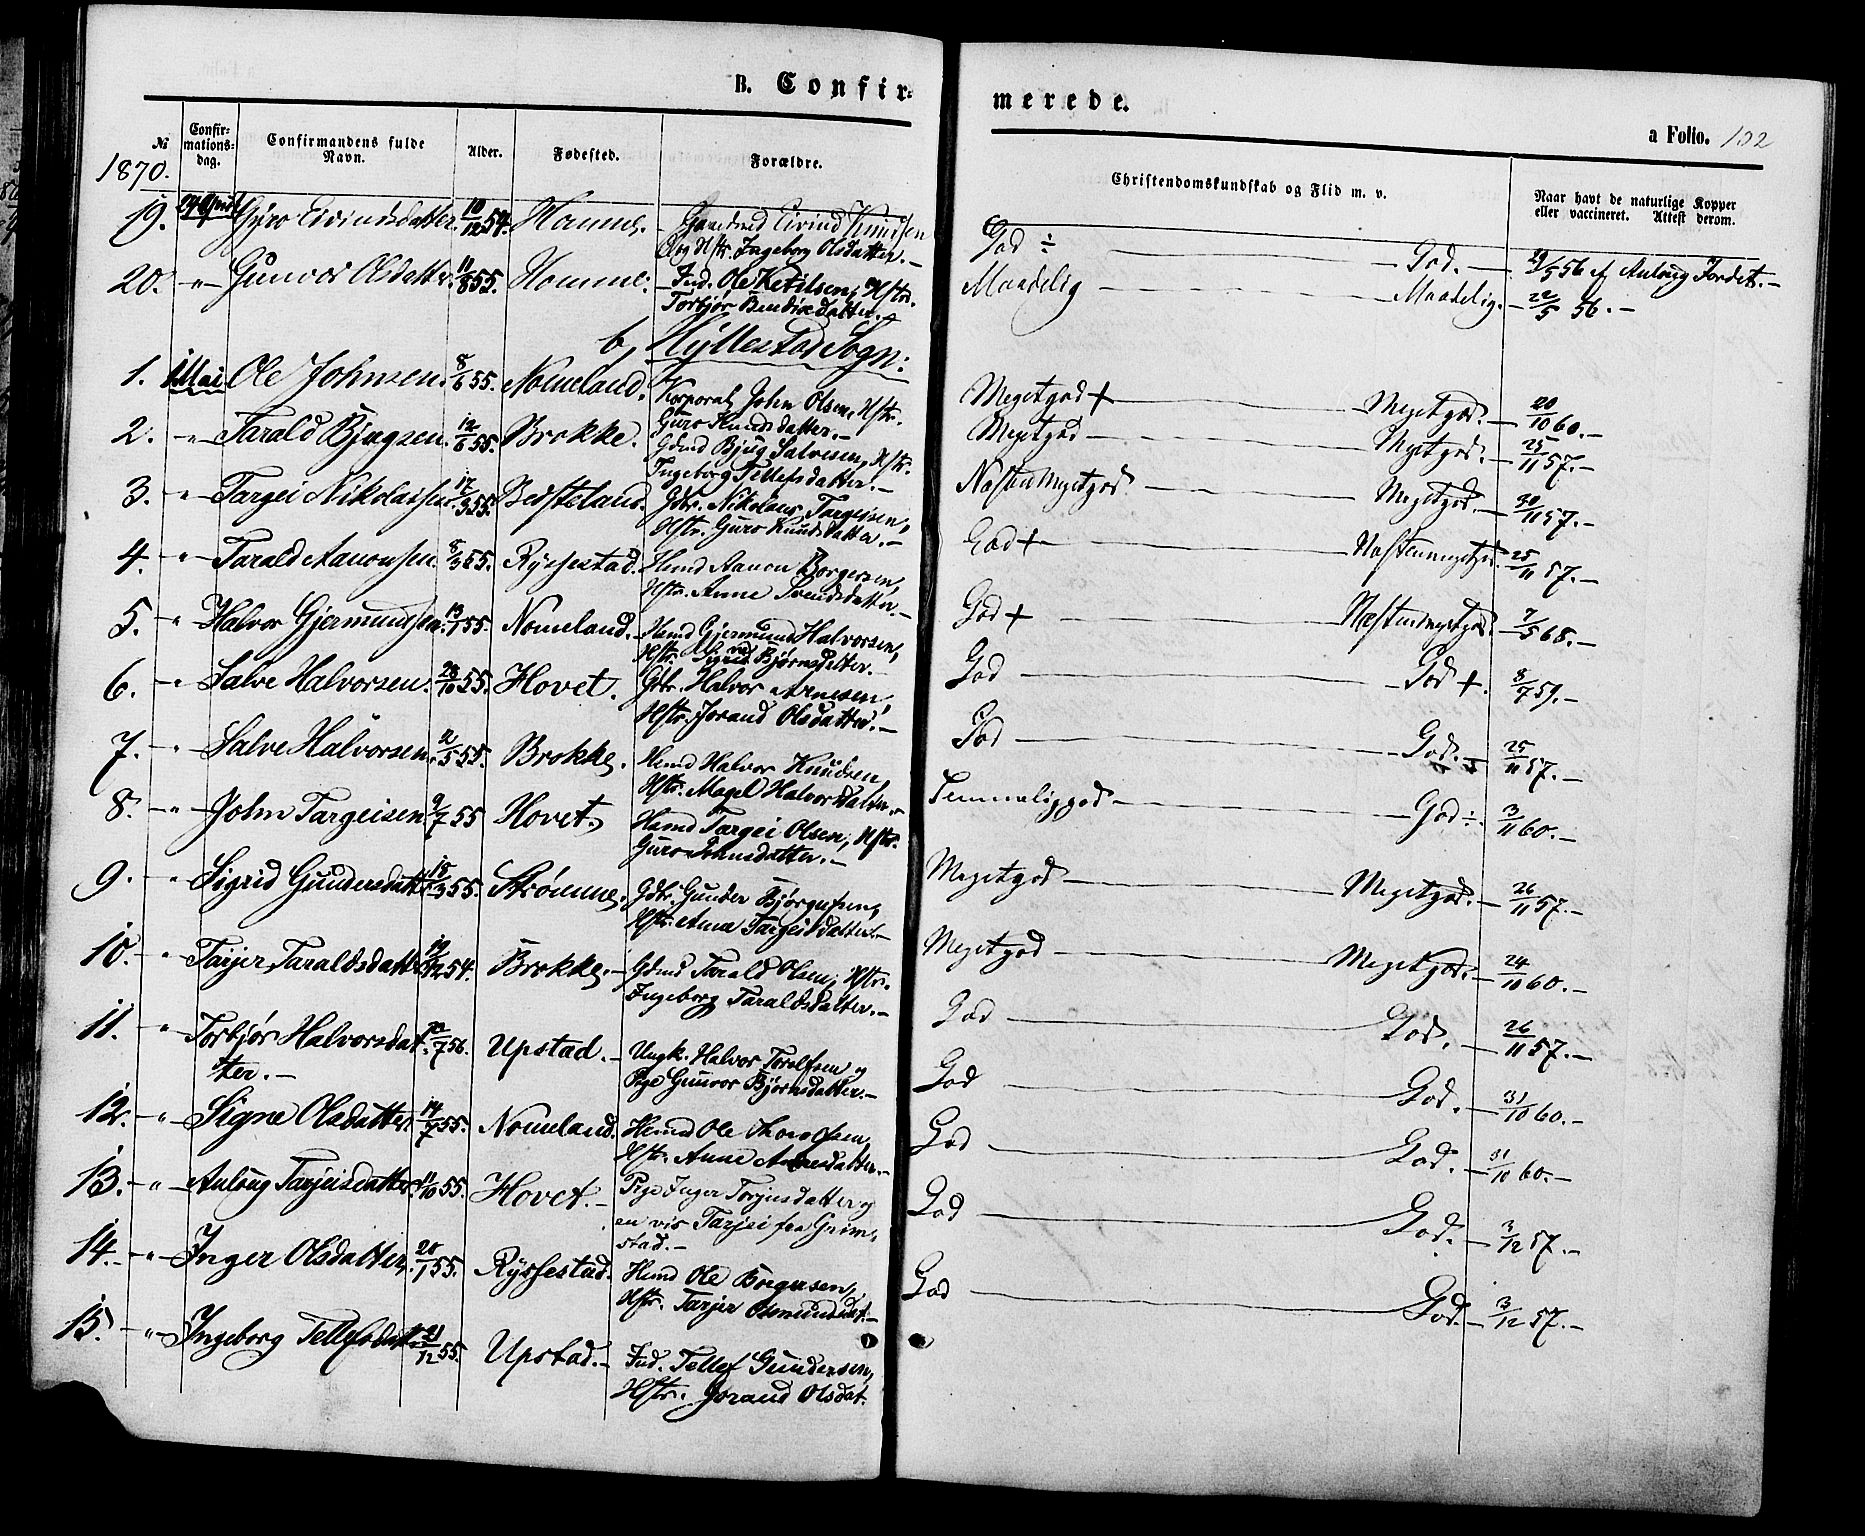 B. Confir-
merede.
a Folio. 102
№
Confir-
mations-
dag.
Confirmandens fulde
Navn.
Alder.
Fødested.
Forældre.
Christendomskundskab og Flid m. v.
Naar havt de naturlige Kopper
eller vaccineret. Attest derom.
1870.
19. 24 April Gyro Eivindsdatter. 10/12 54. Homme. Eivind Knudsen
Hstr. Ingeborg Olsdatter.–
God ÷ — God. — 29/5 56 af Aulaug Jordet.–
20. –"– Gunvor Olsdatter. 11/8 55. Homme. Ind. Ole Ketilsen, Hstr.
Torbjør Bendixdatter.–
Maadelig — Maadelig. – 22/5 56.–
b, Hyllestad Sogn:
1. 1 Mai Ole Johnsen. 8/6 55. Nomeland. Korporal John Olsen, Hstr.
Guro Knudsdatter.–
Megetgod + — Megetgod. – 20/10 60.–
2. –"– Tarald Bjugsen. 12/6 55. Brokke. Gdmd Bjug Salvesen, Hstr.
Ingeborg Tellefsdatter.–
Megetgod — Megetgod. – 25/11 57.–
3. –"– Targei Nikolaissen. 17/3 55. Besteland. Gdbr. Nikolaus Targeisen,
Hstr. Guro Knudsdatter.–
Næsten Megetgod — Megetgod. – 30/11 57.–
4. –"– Tarald Aanonsen. 8/3 55. Ryssestad. Hmd Aanon Borgersen,
Hstr. Anne Svendsdatter.–
God + — Næstenmegetgod. 25/11 57.–
5. –"– Halvor Gjermundsen. 13/1 55. Nomeland. Hmd Gjermund Halvorsen,
Hstr. Sigrid Bjørnsdatter.–
God + — Næstenmegetgod. 7/5 68.–
6. –"– Salve Halvorsen. 28/10 55. Hovet. Gdbr. Halvor Arnesen,
Hstr. Jorand Olsdatter.–
God — God +. 8/7 59.–
7. –"– Salve Halvorsen. 2/5 55. Brokke. Hmd Halvor Knudsen,
Hstr. Magel Halvorsdatter.–
God — God. – 25/11 57.–
8. –"– John Targeisen. 9/7 55 Hovet. Hmd Targei Olsen, Hstr.
Guro Johnsdatter.–
Temmeliggod — God ÷. 3/11 60.–
9. " Sigrid Gundersdatt. 18/3 55. Strømme. Gdbr. Gunder Bjørgufsen,
Hstr. Anne Targeisdatter.–
Megetgod — Megetgod. – 26/11 57.–
10. –"– Tarjer Taraldsdatter 19/12 54. Brokke. – Gdmd Tarald Olsen, Hstr.
Ingeborg Taraldsdatter.–
Megetgod — Megetgod. – 24/10 60.–
11. –"– Torbjør Halvorsdat- 10/7 56. Upstad.– Ungk. Halvor Torelfsen og
ter.– Pige Gunvor Bjørnsdatter.–
God — God. – 26/11 57.–
12. –"– Signe Olsdatter. 14/7 55. Nomeland. Hmd Ole Olsen,
Hstr. Anne Arnesdatter.–
God — God. – 31/10 60.–
13. –"– Aulaug Tarjeisdatter. 11/10 55. Hovet.– Pige Inger Torjusdatter og
en vis Tarjei fra Grim-
stad.–
God — God. – 31/10 60.–
14. –"– Inger Olsdatter. 20/1 55. Ryssestad. Hmd Ole Borgersen,
Hstr. Tarjer Osmundsdat.–
God — God. – 3/12 57.–
15. –"– Ingeborg Tellefsdat. 21/12 55. Upstad.– Ind. Tellef Gundersen,
Hstr. Jorand Olsdat.
God — God. – 3/12 57.–